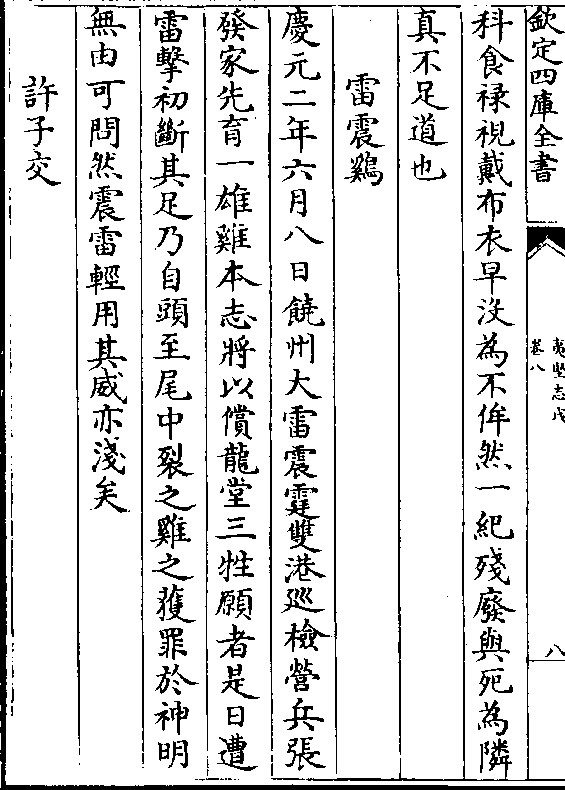 欽定四庫全書
夷堅志戊
卷八
八
科食禄視戴布衣早没為不侔然一紀殘廢與死為隣
真不足道也
雷震鷄
慶元二年六月八日饒州大雷震霆雙港巡檢營兵張
發家先育一雄雞本志將以償龍堂三牲願者是日遭
雷擊初斷其足乃自頭至尾中裂之雞之獲罪於神明
無由可問然震雷輕用其威亦淺矣
許子交